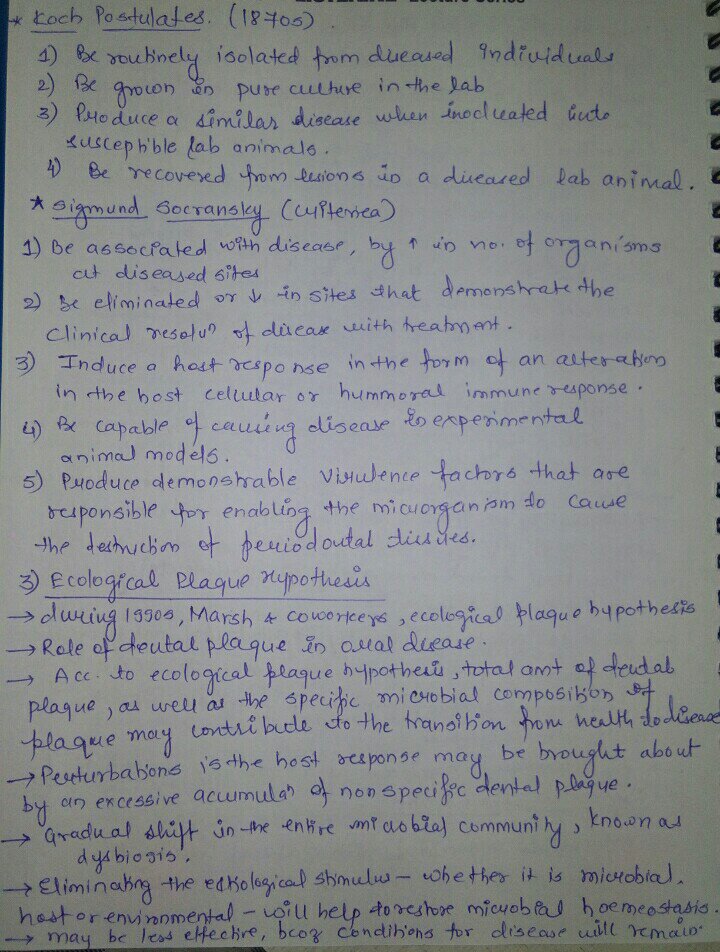 * Koch Postulates. (1870s)
1) Be routinely isolated from diseased individuals
2) Be grown in pure culture in the lab
3) Produce a similar disease when inoclueated into
susceptible lab animals.
4) Be recovered from lesions in a diseased lab animal.
* Sigmund Socransky (criteriea)
1) Be associated with disease, by ↑ in no. of organisms
at diseased sites
2) Be eliminated or ↓ in sites that demonstrate the
clinical resolun of disease with treatment.
3) Induce a host response in the form of an alteration
in the host cellular or hummoral immune response.
4) Be capable of causing disease in experimental
animal models.
5) Produce demonstrable virulence factors that are
responsible for enabling the microrganism to cause
the destruction of periodontal tissues.
3) Ecological Plaque Hypothesis
→ during 1990s, Marsh & coworkers, ecological plaque hypothesis
→ Role of dental plaque in oral disease.
→ Acc. to ecological plaque hypothesis, total amt of dental
plaque, as well as the specific microbial composition of
plaque may contribute to the transition from health to disease
→ Perturbations is the host response may be brought about
by an excessive accumulan of nonspecific dental plaque.
→ Gradual shift in the entire microbial community, known as
dysbiosis.
→ Eliminating the etiological stimulus - whether it is microbial,
host or environmental - will help to restore microbial hoemeostasis.
→ may be less effective, bcoz conditions for disease will remain